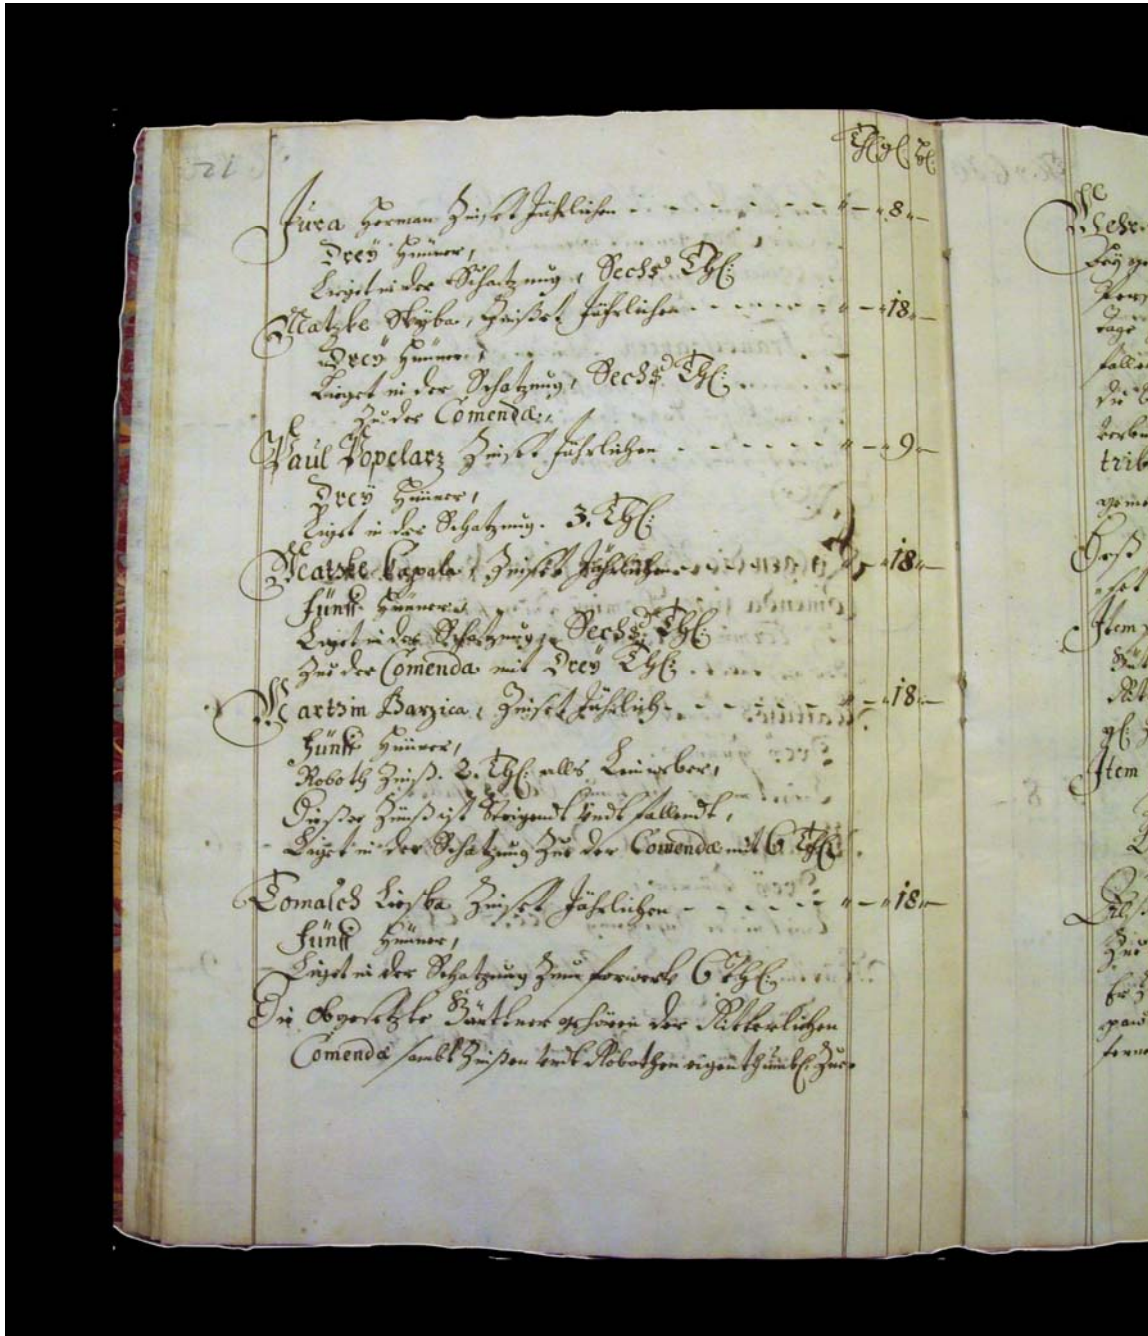 Thl gl hl:
Jura Herman Zinset Jährlichen - - - - - - - " - " 8 " -
Drey Hüner,
Lieget in der Schatzung, Sechs Thl:
Matzke Skyba, Zinßet Jährlichen - - - - - - " - " 18 " -
Drey Hüner,
Lieget in der Schatzung, Sechs Thl:
Zu der Comenda,
Paul Popelarz Zinset Jährlichen - - - - - - " - " 9 " -
Drey Hüner,
Liget in der Schatzung. 3. Thl:
Matzke Kapala, Zinset Jährlichen - - - - " - " 18 " -
Fünff Hüner,
Lieget in der Schatzung, Sechs Thl:
Zu der Comenda mit Drey Thl:
Martzin Barzica, Zinset Jährlich - - - - - " - " 18 " -
Fünff Hüner,
Roboth Zinß. 2. Thl: alls Leinweber,
Dießer Zinß ist Steigendt undt fallendt,
Lieget in der Schatzung Zue der Comenda mit 6 Thl:
Tomasch Lieska Zinset Jährlichen - - - - - " - " 18 " -
Fünff Hüner,
Lieget in der Schatzung Zum forwerk 6 Thl:
Die Obgesetzte Gärttner gehören der Ritterlichen
Comenda sambt Zinßen undt Robothen eigenthümbl: Zue
Item
trib
Item